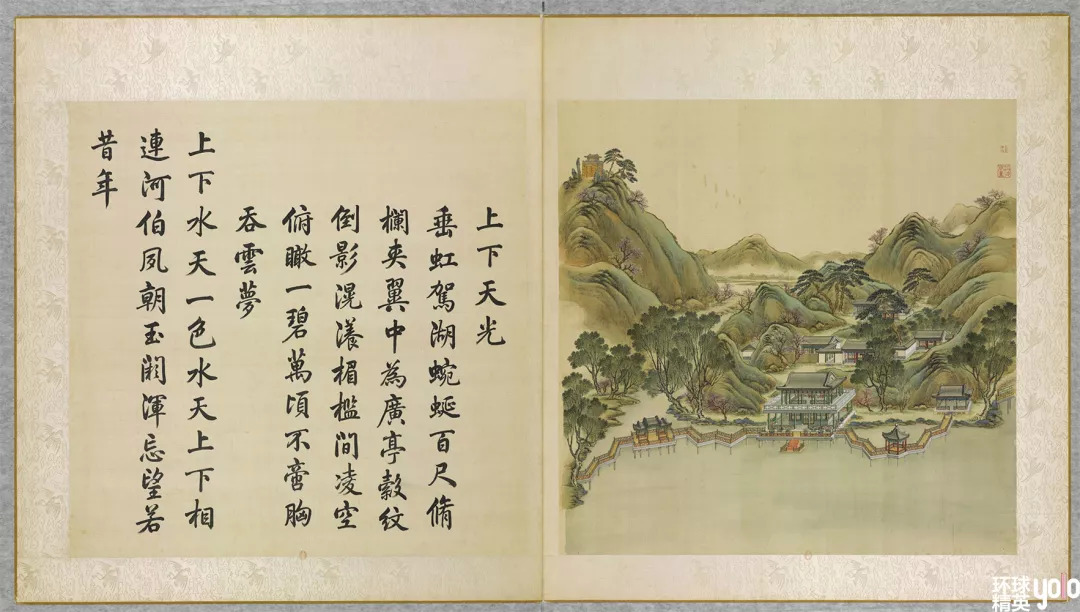 上下天光
垂虹駕湖蜿蜒百尺脩
欄夾翼中為廣亭縠紋
倒影滉瀁楣檻間凌空
俯瞰一碧萬頃不啻胸
吞雲夢
上下水天一色水天上下相
連河伯夙朝玉闕渾忘望若
昔年
环球
精英
yolo